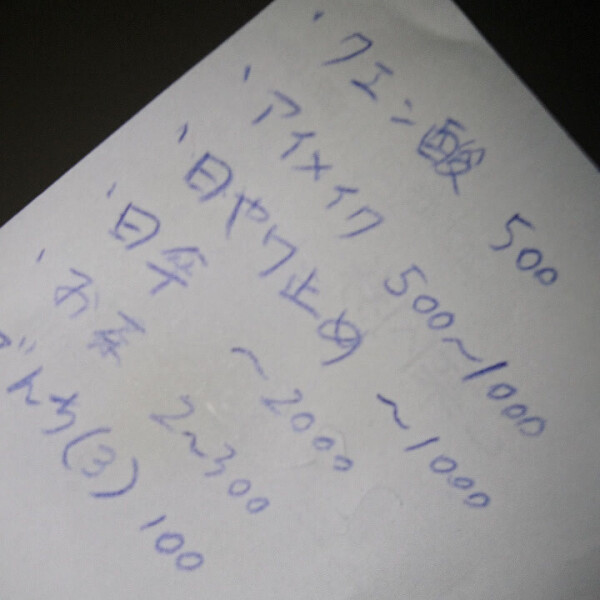 ・クエン酸 500
・アイメイク 500~1000
・日やけ止め ~1000
・日傘 ~2000
・お茶 2~300
でんち(3) 100